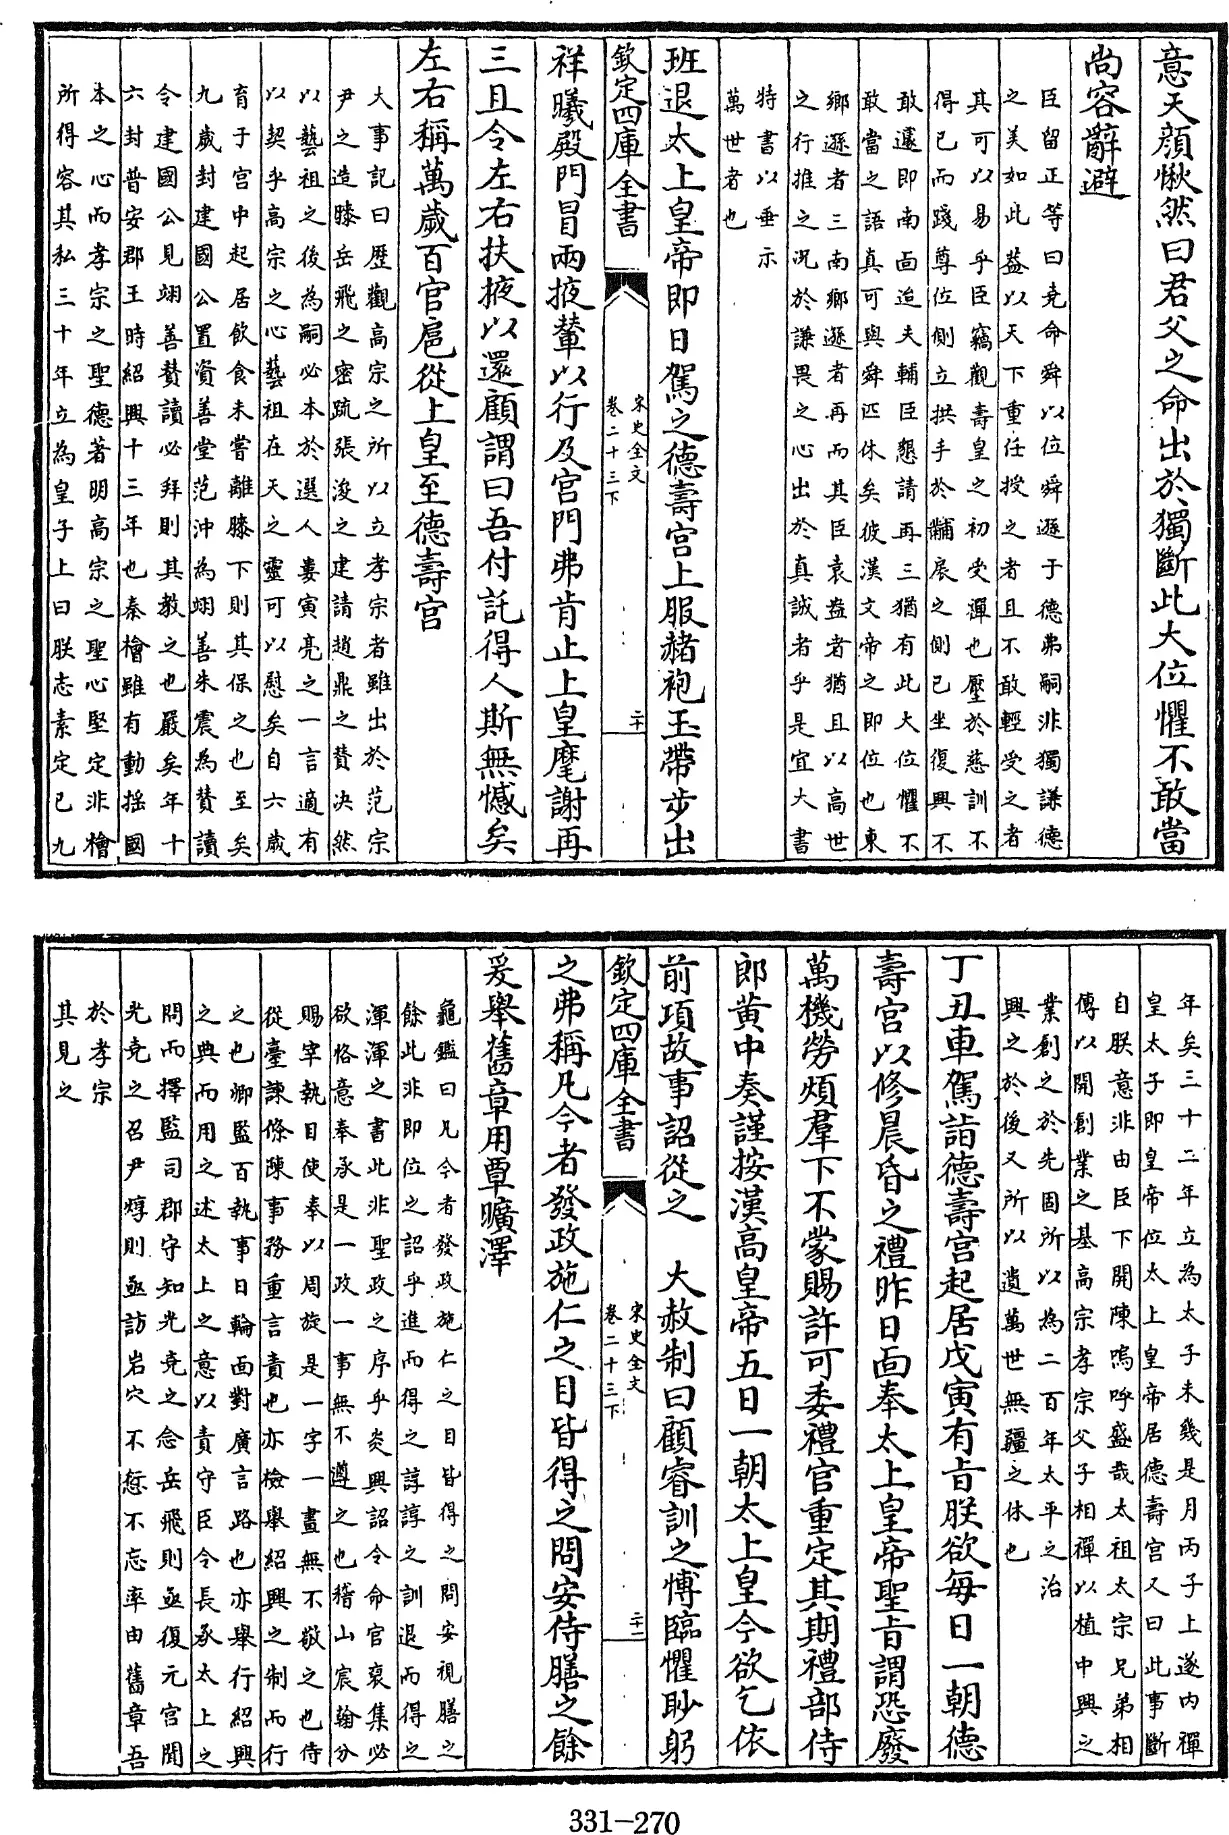 意天顔愀然曰君父之命出於獨斷此大位懼不敢當
尚容辭避
臣留正等曰堯命舜以位舜遜于德弗嗣非獨謙德
之美如此蓋以天下重任授之者且不敢輕受之者
其可以易乎臣竊觀壽皇之初受禪也壓於慈訓不
得已而踐尊位側立拱手於黼扆之側已坐復興不
敢遽即南面迨夫輔臣懇請再三猶有此大位懼不
敢當之語真可與舜匹休矣彼漢文帝之即位也東
鄉遜者三南鄉遜者再而其臣袁盎者猶且以高世
之行推之况於謙畏之心出於真誠者乎是宜大書
特書以垂示
萬世者也
班退太上皇帝即日駕之德壽宫上服赭袍玉帶步出
欽定四庫全書
宋史全文
卷二十三下
二十
祥曦殿門冒雨掖輦以行及宫門弗肯止上皇麾謝再
三且令左右扶掖以還顧謂曰吾付託得人斯無憾矣
左右稱萬歲百官扈從上皇至德壽宫
大事記曰歷觀高宗之所以立孝宗者雖出於范宗
尹之造膝岳飛之密疏張浚之建請趙鼎之賛决然
以藝祖之後為嗣必本於選人婁寅亮之一言適有
以契乎高宗之心藝祖在天之靈可以慰矣自六歲
育于宫中起居飲食未嘗離膝下則其保之也至矣
九歲封建國公置資善堂范沖為翊善朱震為賛讀
令建國公見翊善賛讀必拜則其教之也嚴矣年十
六封普安郡王時紹興十三年也秦檜雖有動揺國
本之心而孝宗之聖德著明高宗之聖心堅定非檜
所得容其私三十年立為皇子上曰朕志素定已九
年矣三十二年立為太子未幾是月丙子上遂内禪
皇太子即皇帝位太上皇帝居德壽宫又曰此事斷
自朕意非由臣下開陳嗚呼盛哉太祖太宗兄弟相
傳以開創業之基高宗孝宗父子相禪以植中興之
業創之於先固所以為二百年太平之治
興之於後又所以遺萬世無疆之休也
丁丑車駕詣德壽宫起居戊寅有旨朕欲每日一朝德
壽宫以修晨昏之禮昨日面奉太上皇帝聖旨謂恐廢
萬機勞煩羣下不蒙賜許可委禮官重定其期禮部侍
郎黄中奏謹按漢高皇帝五日一朝太上皇今欲乞依
前項故事詔從之　大赦制曰顧睿訓之博臨懼眇躬
欽定四庫全書
宋史全文
卷二十三下
二十一
之弗稱凡今者發政施仁之目皆得之問安侍膳之餘
爰舉舊章用覃曠澤
龜鑑曰凡今者發政施仁之目皆得之問安視膳之
餘此非即位之詔乎進而得之諄諄之訓退而得之
渾渾之書此非聖政之序乎炎興詔令命官裒集必
欲恪意奉承是一政一事無不遵之也稽山宸翰分
賜宰執目使奉以周旋是一字一畫無不敬之也侍
從臺諫條陳事務重言責也亦檢舉紹興之制而行
之也卿監百執事日輪面對廣言路也亦舉行紹興
之典而用之述太上之意以責守臣令長承太上之
問而擇監司郡守知光堯之念岳飛則亟復元官聞
光堯之召尹焞則亟訪岩穴不愆不忘率由舊章吾
於孝宗
其見之
331-270